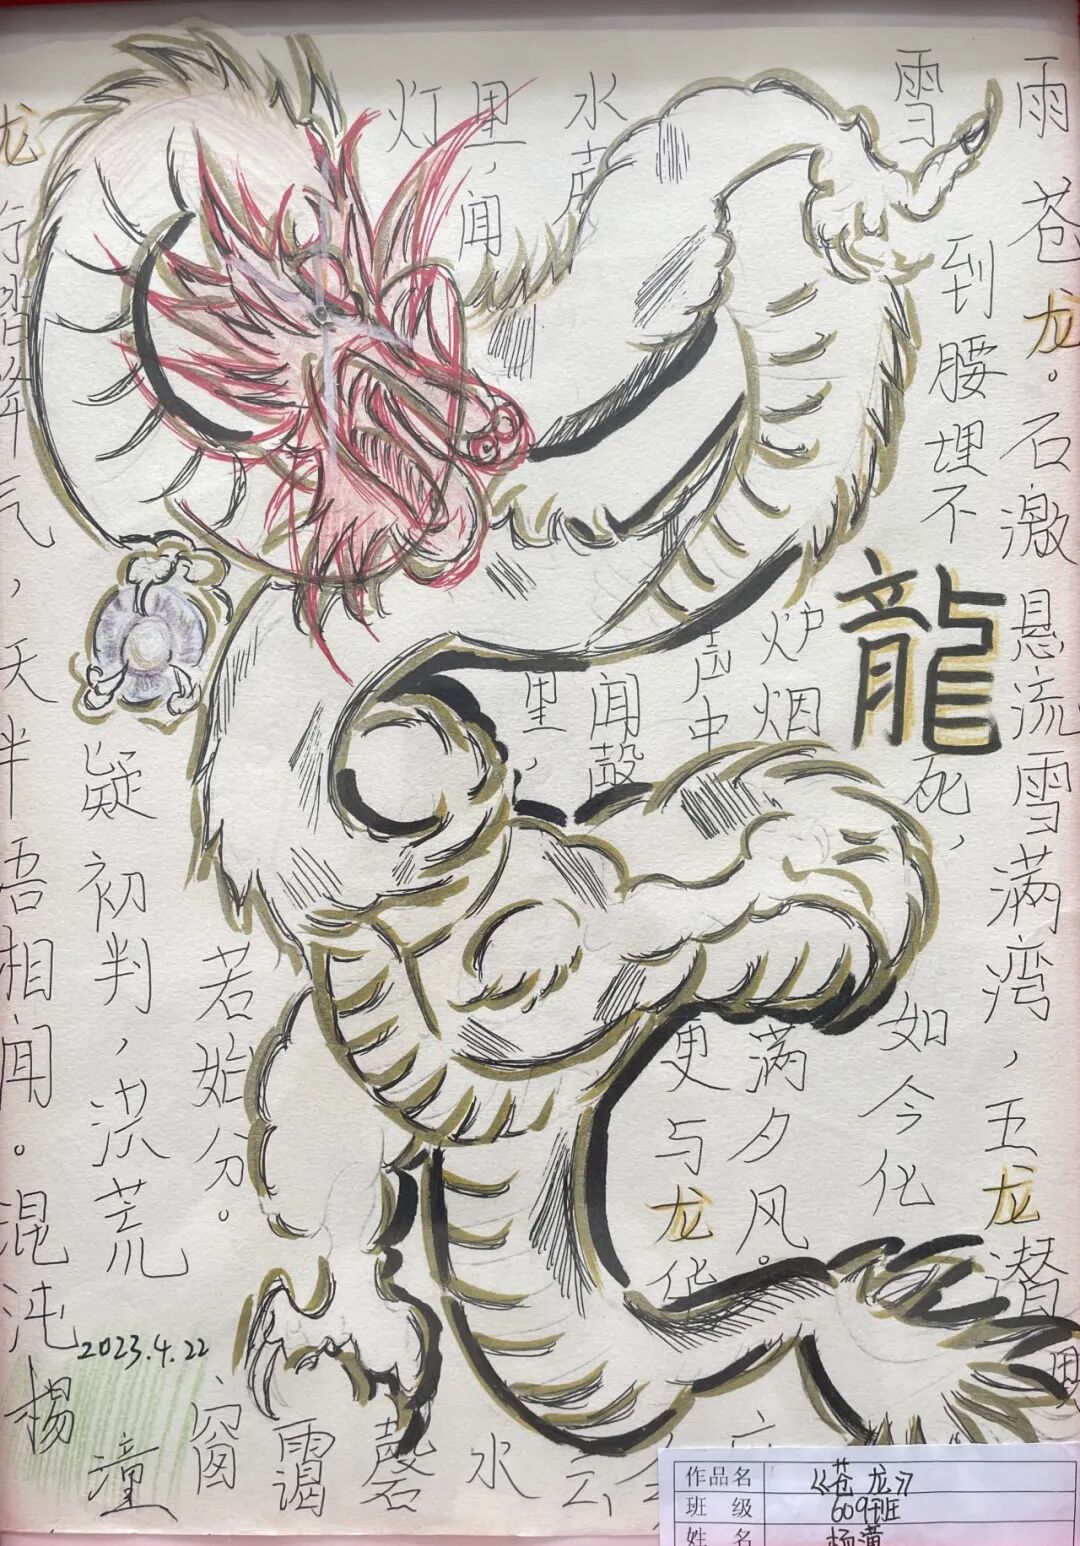 雨苍龙。石激悬流雪满湾，五龙潜
雪到腰埋不死，如今化
龍
炉烟满夕风。
水声
声中更与龙
灯里，闻
里，闻
若始分。
疑初判，洪荒
龙行踏绛气，天半吾相闻。混沌
2023.4.22
杨
潼
窗
霭
磬
水
云
作品名 《苍龙》
班级 609班
姓名 杨潼